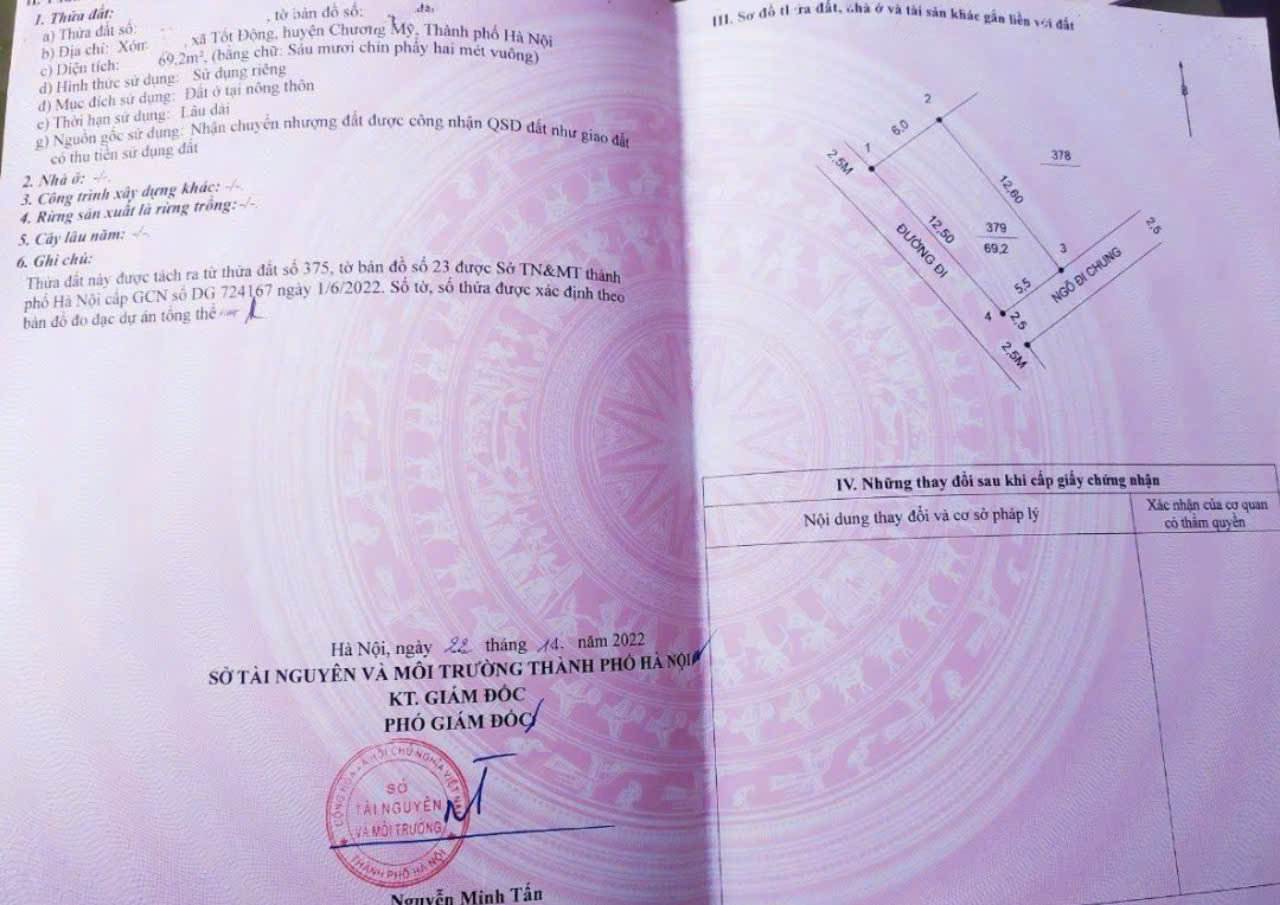 1. Thửa đất:
a) Thửa đất số: , tờ bản đồ số:
b) Địa chỉ: Xóm , xã Tốt Động, huyện Chương Mỹ, Thành phố Hà Nội
c) Diện tích: 69,2m², (bằng chữ: Sáu mươi chín phẩy hai mét vuông)
d) Hình thức sử dụng: Sử dụng riêng
đ) Mục đích sử dụng: Đất ở tại nông thôn
e) Thời hạn sử dụng: Lâu dài
g) Nguồn gốc sử dụng: Nhận chuyển nhượng đất được công nhận QSD đất như giao đất
có thu tiền sử dụng đất
2. Nhà ở: -/-.
3. Công trình xây dựng khác: -/-.
4. Rừng sản xuất là rừng trồng:-/-.
5. Cây lâu năm: -/-.
6. Ghi chú:
Thửa đất này được tách ra từ thửa đất số 375, tờ bản đồ số 23 được Sở TN&MT thành
phố Hà Nội cấp GCN số DG 724167 ngày 1/6/2022. Số tờ, số thửa được xác định theo
bản đồ đo đạc dự án tổng thể
Hà Nội, ngày 22 tháng 11. năm 2022
SỞ TÀI NGUYÊN VÀ MÔI TRƯỜNG THÀNH PHỐ HÀ NỘI
KT. GIÁM ĐỐC
PHÓ GIÁM ĐỐC
CỘNG HÒA XÃ HỘI CHỦ NGHĨA VIỆT NAM
SỞ
TÀI NGUYÊN
VÀ MÔI TRƯỜNG
THÀNH PHỐ HÀ NỘI
Nguyễn Minh Tấn
III. Sơ đồ thửa đất, nhà ở và tài sản khác gắn liền với đất
B
2
6,0
1
2,5M
378
12,60
12,50
379
69,2
ĐƯỜNG ĐI
3
2,5
5,5
NGÕ ĐI CHUNG
4
2,5
2,5M
IV. Những thay đổi sau khi cấp giấy chứng nhận
Nội dung thay đổi và cơ sở pháp lý
Xác nhận của cơ quan
có thẩm quyền